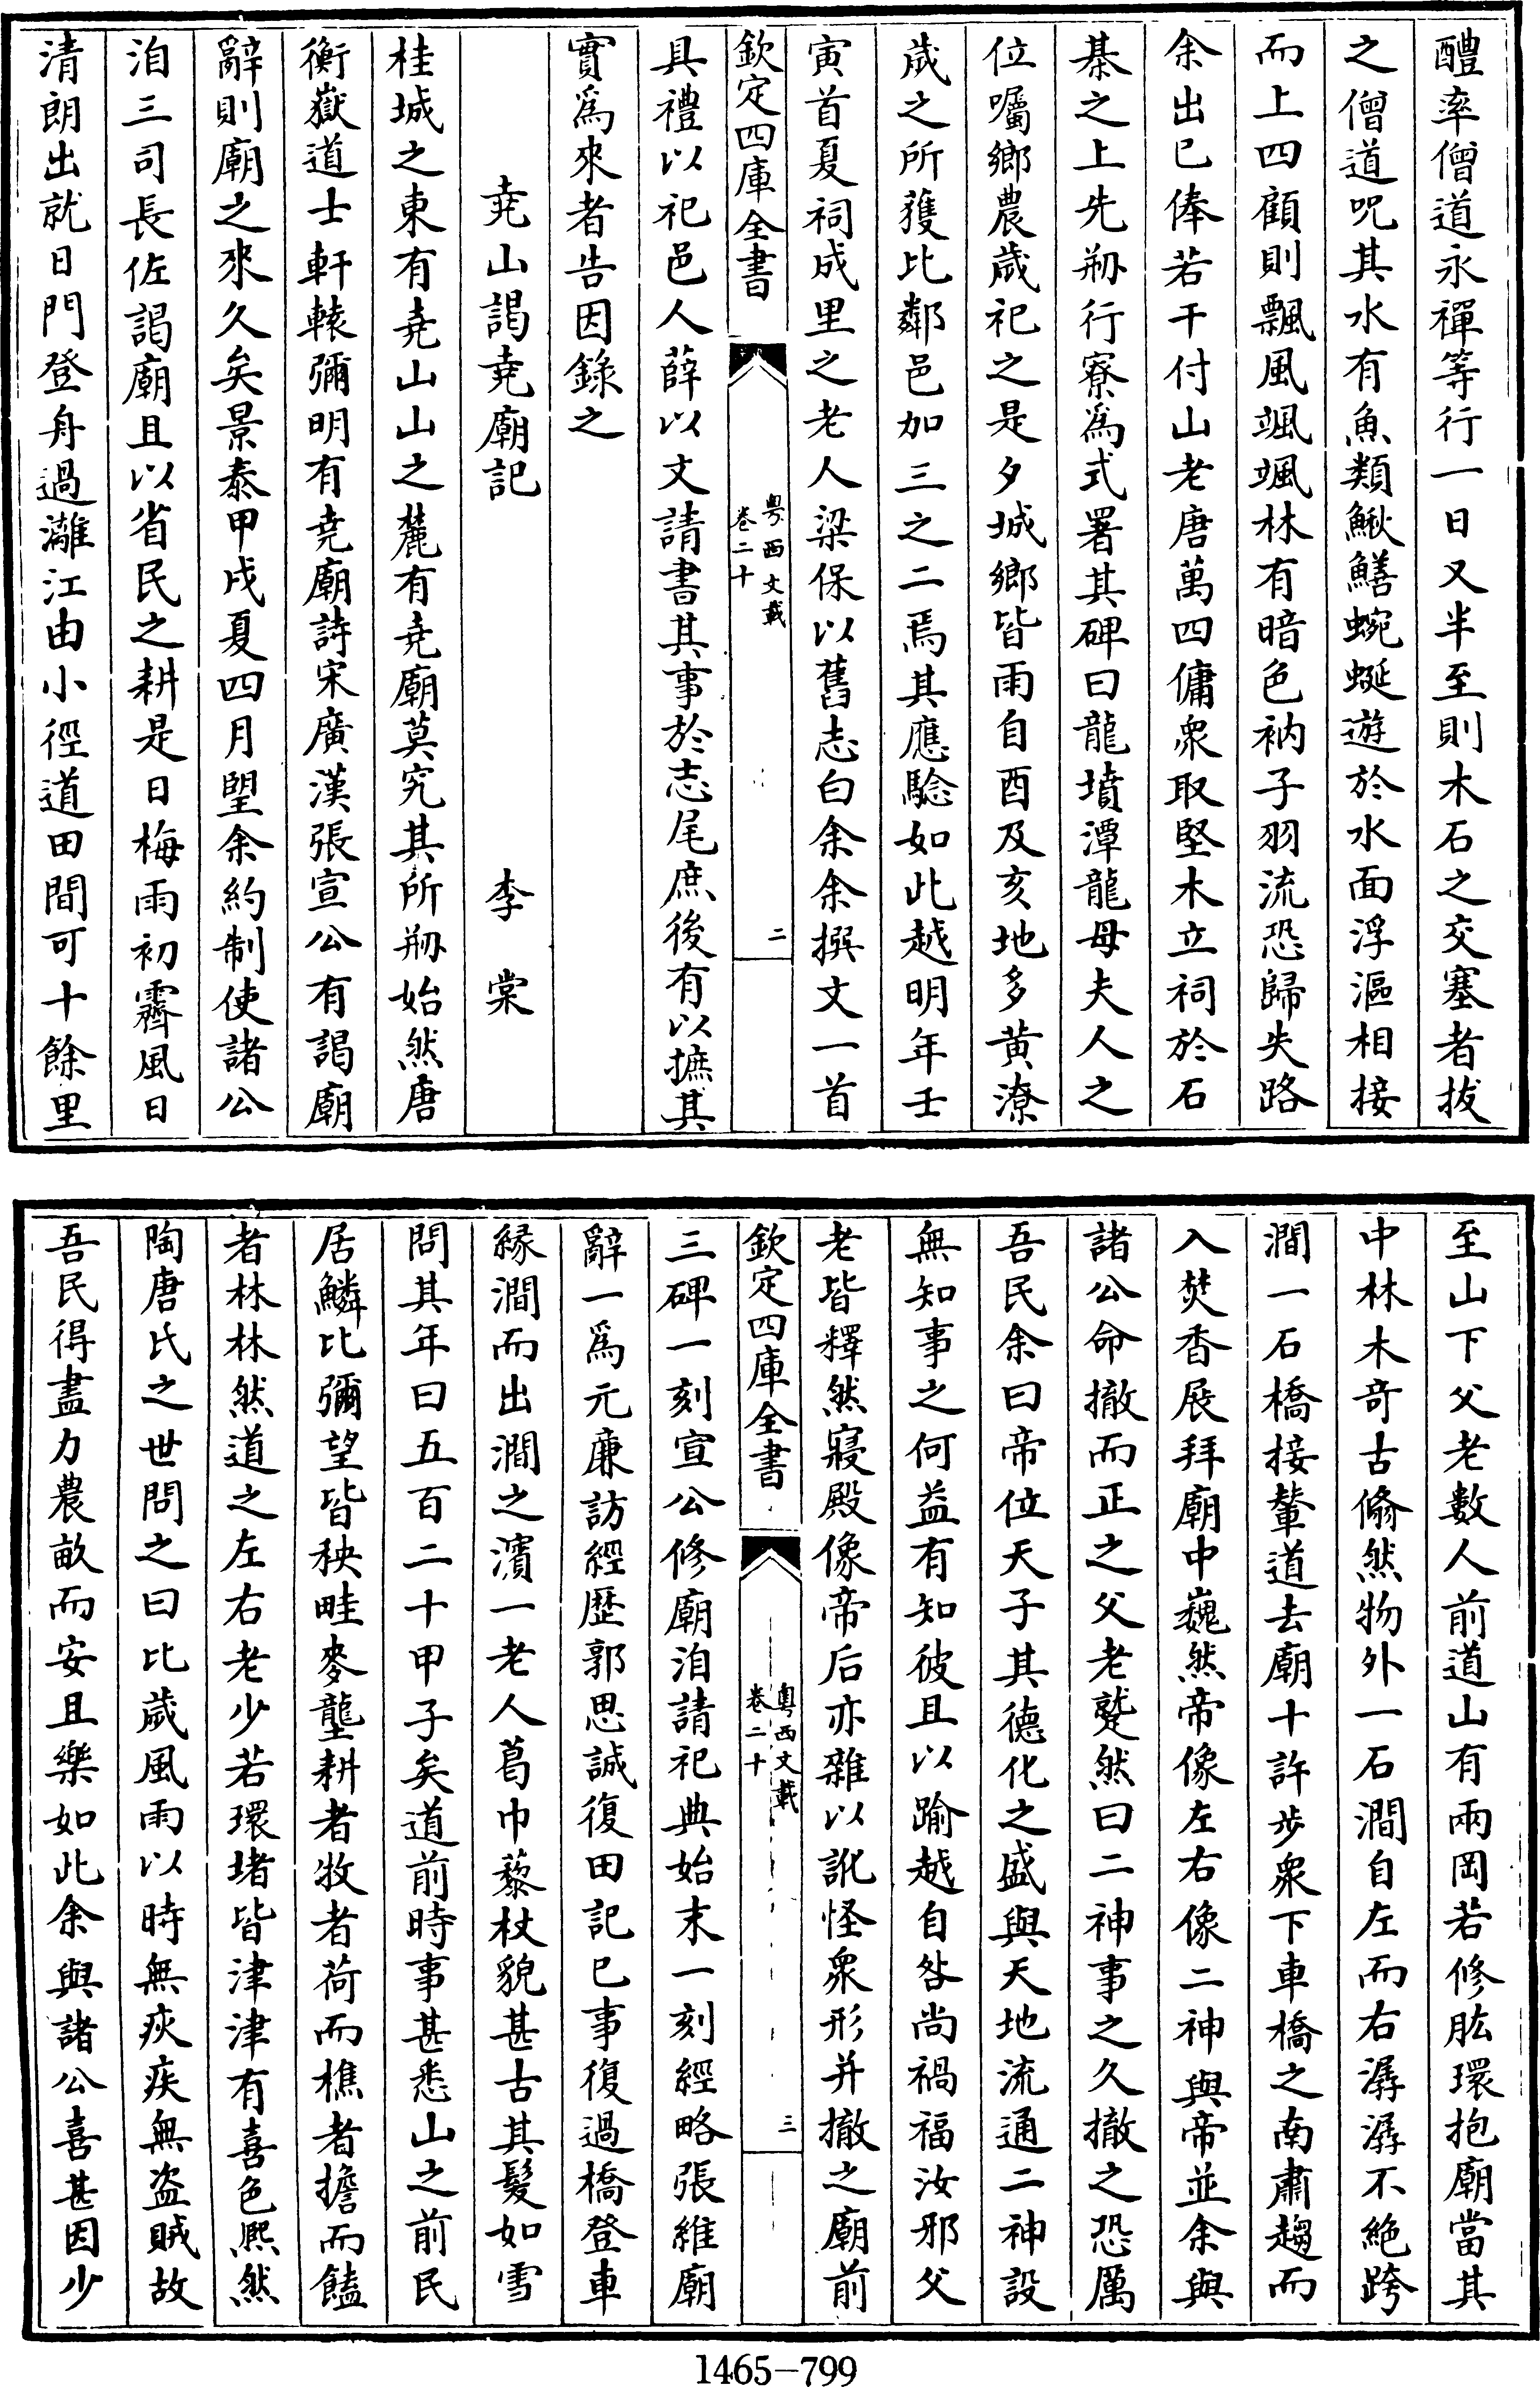 醴率僧道永禪等行一日又半至則木石之交塞者拔
之僧道呪其水有魚類鰍鱔蜿蜒遊於水面浮漚相接
而上四顧則飄風颯颯林有暗色衲子羽流恐歸失路
余出已俸若干付山老唐萬四傭衆取堅木立祠於石
棊之上先刱行寮爲式署其碑曰龍墳潭龍母夫人之
位囑鄉農歲祀之是夕城鄉皆雨自酉及亥地多黄潦
歲之所獲比鄰邑加三之二焉其應驗如此越明年壬
寅首夏祠成里之老人梁保以舊志白余余撰文一首
欽定四庫全書 粤西文載 卷二十 二
具禮以祀邑人薛以文請書其事於志尾庶後有以摭其
實爲來者告因錄之
堯山謁堯廟記 李棠
桂城之東有堯山山之麓有堯廟莫究其所刱始然唐
衡嶽道士軒轅彌明有堯廟詩宋廣漢張宣公有謁廟
辭則廟之來久矣景泰甲戌夏四月朢余約制使諸公
洎三司長佐謁廟且以省民之耕是日梅雨初霽風日
清朗出就日門登舟過灕江由小徑道田間可十餘里
至山下父老數人前道山有兩岡若修肱環抱廟當其
中林木奇古翛然物外一石澗自左而右潺潺不絶跨
澗一石橋接輦道去廟十許步衆下車橋之南肅趨而
入焚香展拜廟中巍然帝像左右像二神與帝並余與
諸公命撤而正之父老蹵然曰二神事之久撤之恐厲
吾民余曰帝位天子其德化之盛與天地流通二神設
無知事之何益有知彼且以踰越自咎尚禍福汝邪父
老皆釋然寢殿像帝后亦雜以訛怪衆形并撤之廟前
欽定四庫全書 粤西文載 卷二十 三
三碑一刻宣公修廟洎請祀典始末一刻經略張維廟
辭一爲元廉訪經歷郭思誠復田記已事復過橋登車
緣澗而出澗之濱一老人葛巾藜杖貌甚古其髮如雪
問其年曰五百二十甲子矣道前時事甚悉山之前民
居鱗比彌望皆秧畦麥壟耕者牧者荷而樵者擔而饁
者林林然道之左右老少若環堵皆津津有喜色熙然
陶唐氏之世問之曰比歲風雨以時無疢疾無盜賊故
吾民得盡力農畝而安且樂如此余與諸公喜甚因少
1465-799